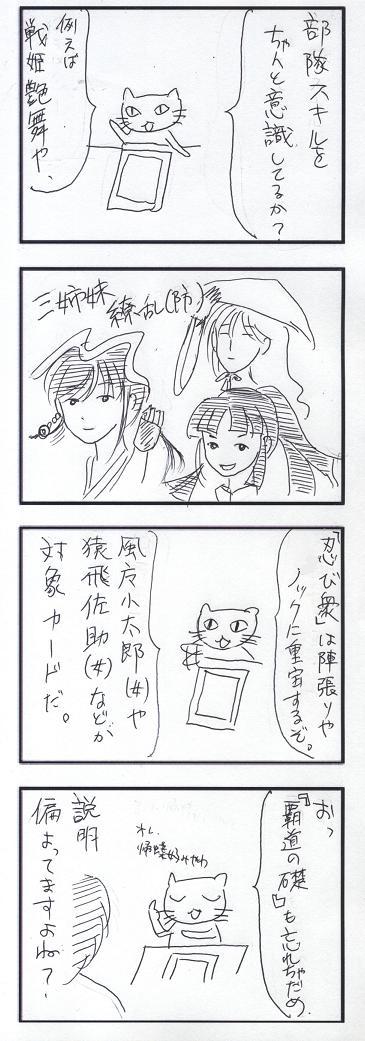 部隊スキルを
ちゃんと意識してるか?
例えば
戦姫艶舞や、
三姉妹
繚乱(防)
『忍び衆』は陣張りや
ノックに重宝するぞ。
風广小太郎(女)や
猿飛佐助(女)などが
対象カードだ。
おっ
『覇道の礎』も忘れちゃだめ
オレ、
説明
偏ってますよね?